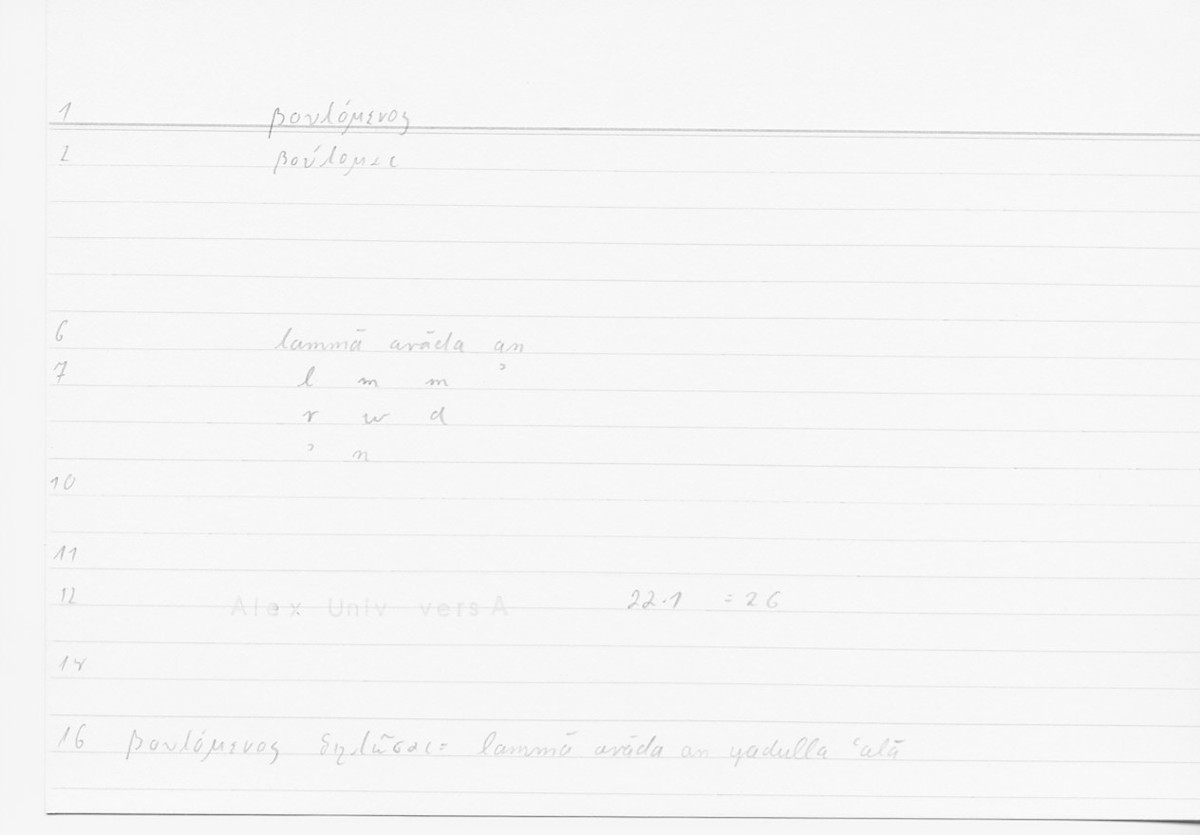 1 βουλόμενος
2 βούλομαι
6 lammā arāda an
7 l m m ʾ
r w d
ʾ n
10
11
12 Alex Univ vers A 22.1 = 26
14
16 βουλόμενος δηλῶσαι = lammā arāda an yadulla ʿalā